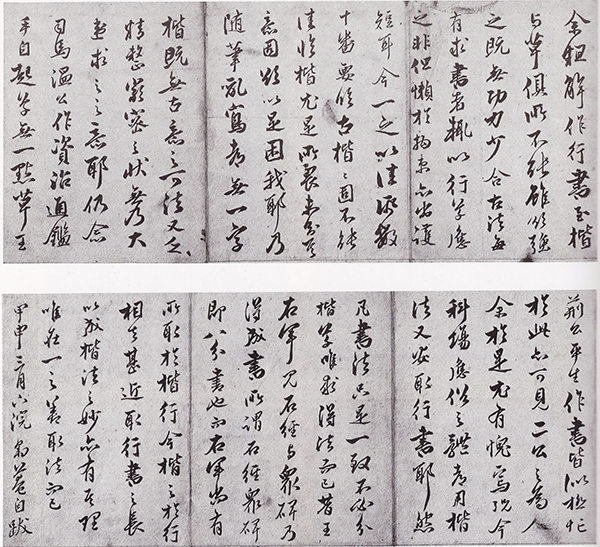 余粗解作行書至楷
与草俱所不能雖然強
之既無功力少合古法每
有求書者輒以行草應
之非但懶於拘束亦出護
短耳今一之以佳紙數
十番要倣古楷楷固不能
佳倣楷尤是所畏
意固欲以是困我耶乃
随筆亂寫者無一字
楷既無古意之可法又乏
精整嚴密之狀無乃大
求之之意耶仍念
司馬温公作資治通鑑
手自起草無一點草王
荊公平生作書皆似極忙
於此亦可見二公之為人
余於是尤有愧焉況今
科場應俗之體者用楷
法又安取行書耶然
凡書法只是一致不必分
楷草唯求得法而已昔王
右軍見石經与衆碑乃
得成書所謂石經衆碑
即八分書也而右軍尚有
所取於楷行今楷之於行
相去甚近取行書之長
以成楷法之妙亦有其理
唯在一之善取法而已
甲申三月六浣菴自跋